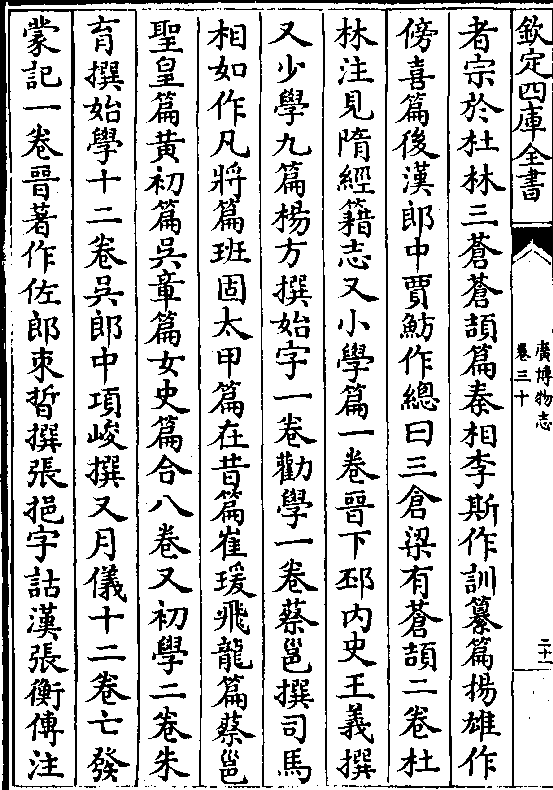 欽定四庫全書
廣博物志
卷三十
二十一
者宗於杜林三蒼蒼頡篇秦相李斯作訓纂篇揚雄作
傍喜篇後漢郎中賈魴作總曰三倉梁有蒼頡二卷杜
林注見隋經籍志又小學篇一卷晉下邳內史王義撰
又少學九篇楊方撰始字一卷勸學一卷蔡邕撰司馬
相如作凡將篇班固太甲篇在昔篇崔瑗飛龍篇蔡邕
聖皇篇黃初篇吳章篇女史篇合八卷又初學二卷朱
育撰始學十二卷吳郎中項峻撰又月儀十二卷亡發
蒙記一卷晉著作佐郎束晳撰張挹字詁漢張衡傳注